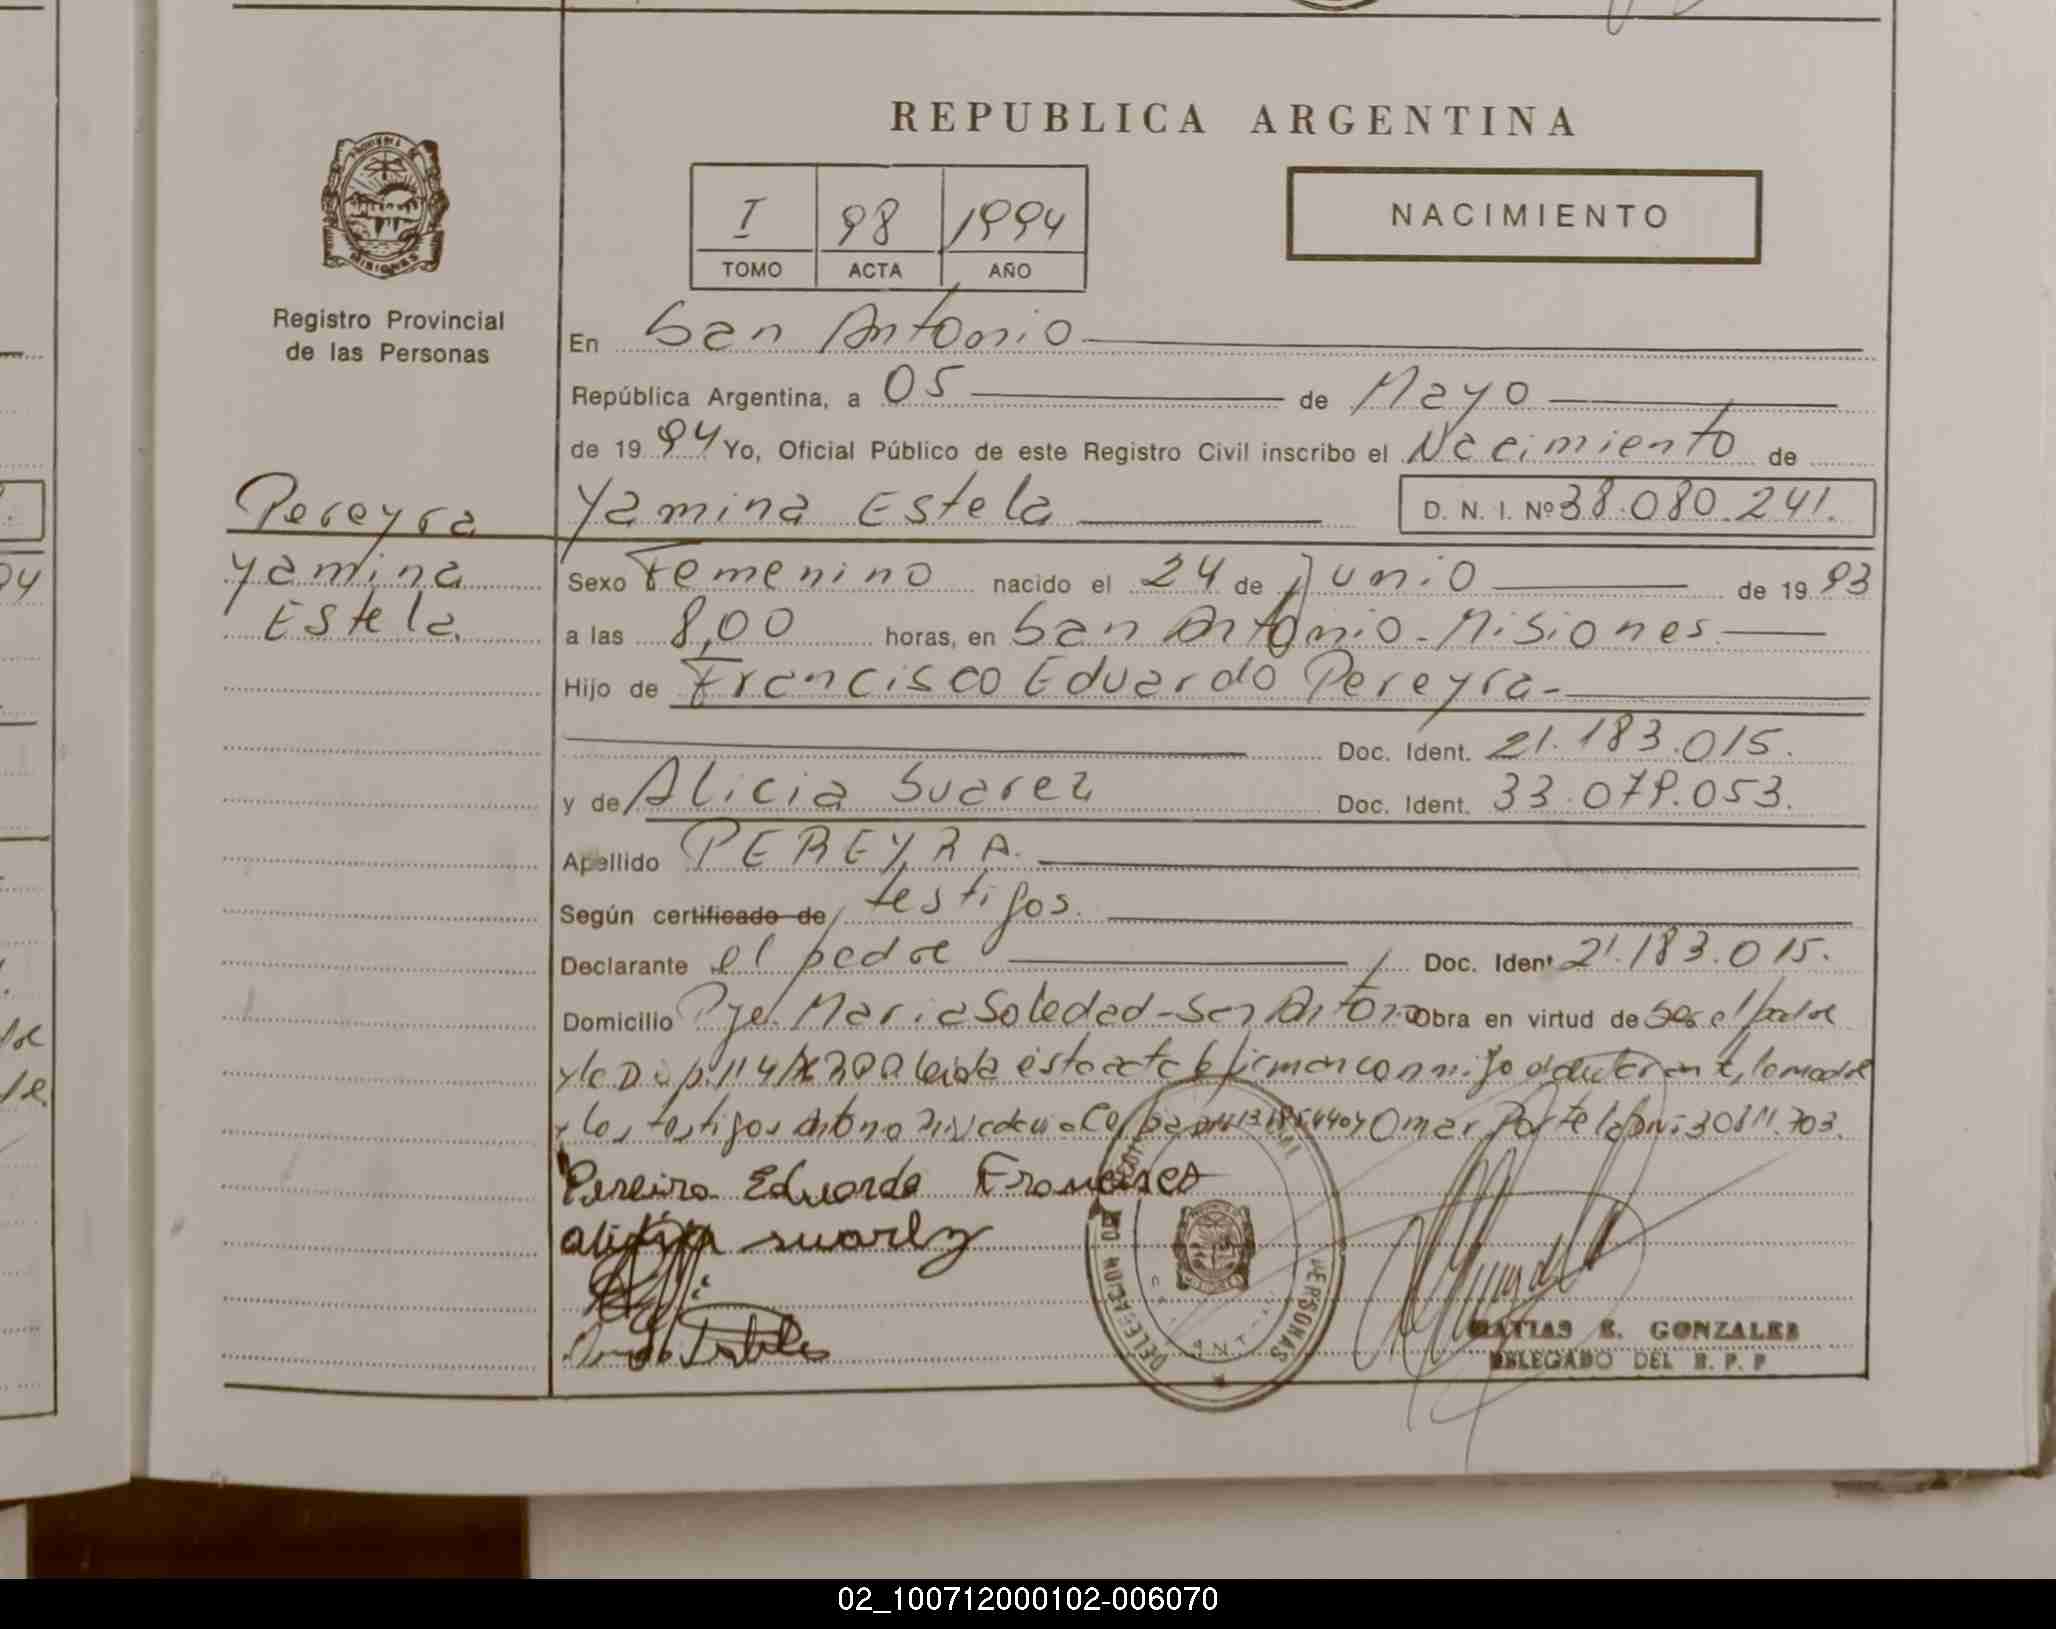 REPUBLICA ARGENTINA
I 98 1994
TOMO ACTA AÑO
NACIMIENTO
MISIONES
Registro Provincial
de las Personas
En San Antonio
República Argentina, a 05 de Mayo
de 1994 Yo, Oficial Público de este Registro Civil inscribo el Nacimiento de
Pereyra
Yamina
Estela
Yamina Estela D. N. I. Nº 38.080.241.
Sexo Femenino nacido el 24 de Junio de 1993
a las 8,00 horas, en San Antonio - Misiones
Hijo de Francisco Eduardo Pereyra
Doc. Ident. 21.183.015.
y de Alicia Suarez Doc. Ident. 33.079.053.
Apellido PEREYRA.
Según certificado de testigos.
Declarante el padre Doc. Ident 21.183.015.
Domicilio Pje. Maria Soledad - San Antonio Obra en virtud de ser el padre
y la Leida esta acta la firman conmigo el declarante, la madre
y los testigos Antonio Omar Portela DNI 30.811.703.
Pereira Eduardo Francisco
alicia suarez
DELEGADO
PERSONAS
MATIAS E. GONZALEZ
DELEGADO DEL R. P. P
02_100712000102-006070